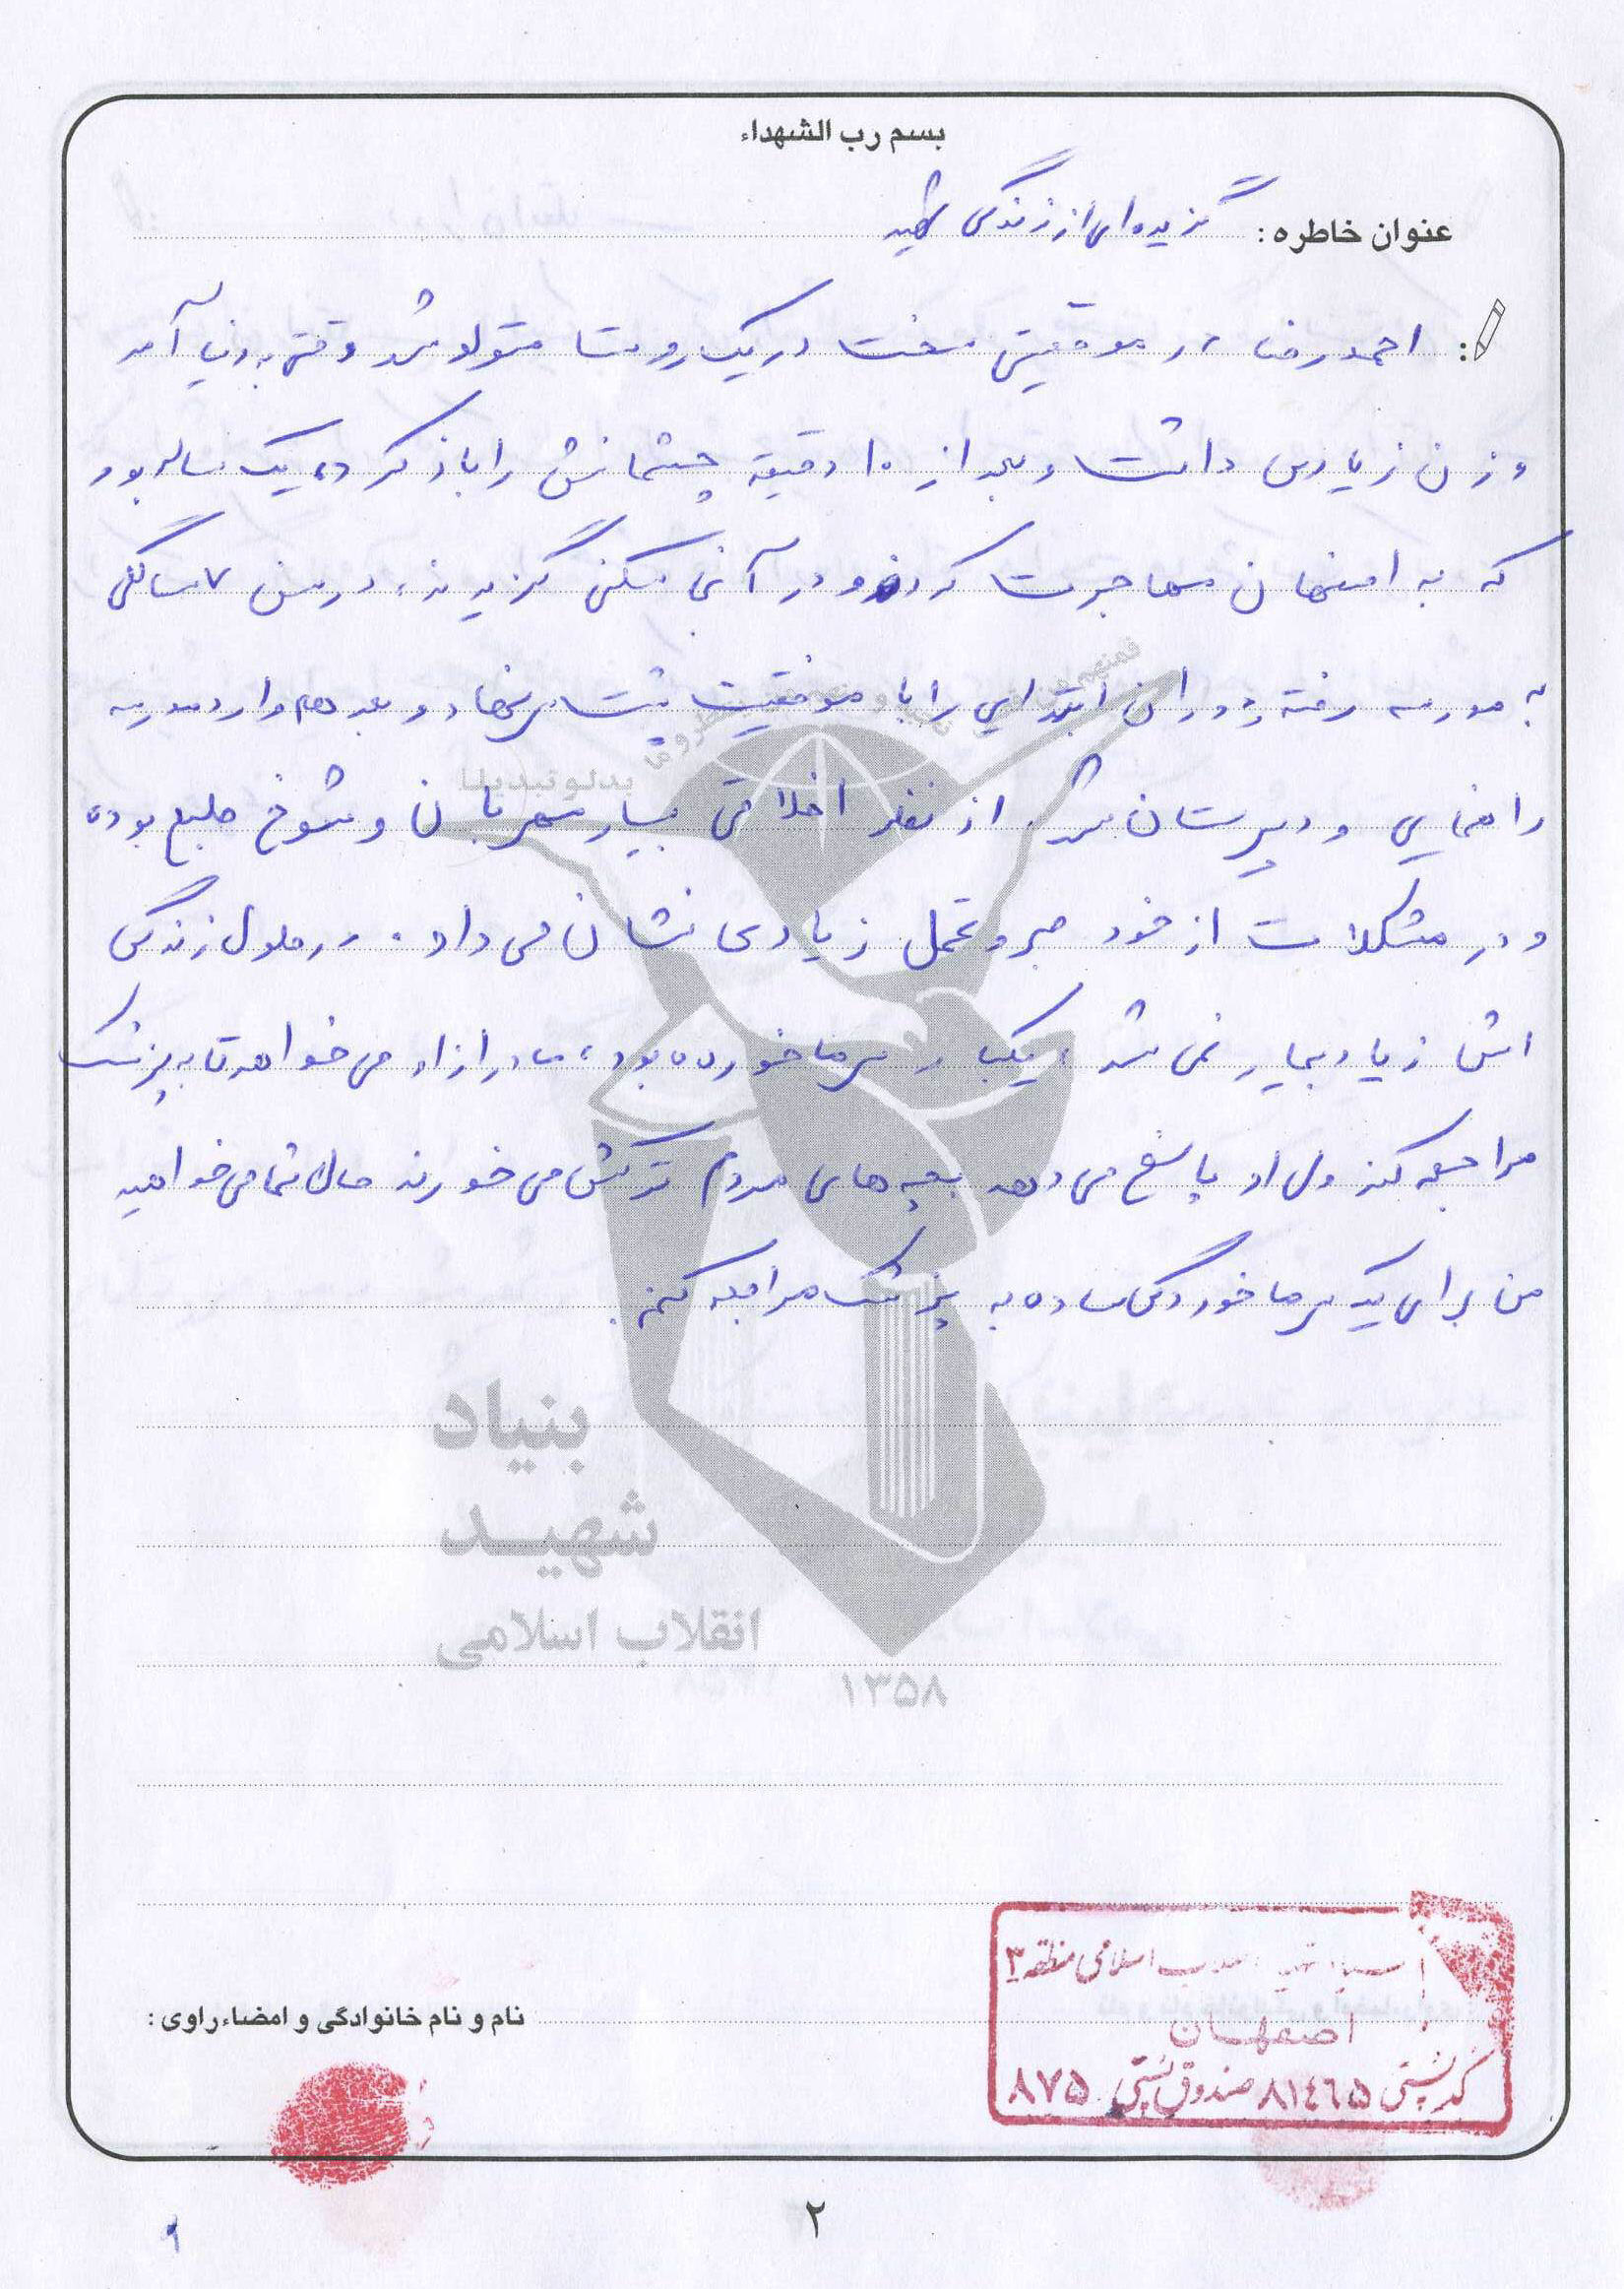 بسم رب الشهداء
عنوان خاطره : گزیده‌ای از زندگی شهید
: احمدرضا در موقعیتی سخت در یک روستا متولد شد وقتی به دنیا آمد
وزن زیادی داشت و بعد از ۱۰ دقیقه چشمانش را باز کرد، یک ساله بود
که به اصفهان مهاجرت کردند و در آنجا سکنی گزیدند، در سن ۷ سالگی
به مدرسه رفته و دوران ابتدایی را با موفقیت پشت سر نهاد و بعد هم وارد مدرسه
راهنمایی و دبیرستان شد. از نظر اخلاقی بسیار مهربان و شوخ طبع بوده
و در مشکلات از خود صبر و تحمل زیادی نشان می داد. در طول زندگی
اش زیاد بیمار نمی شد، یکبار سرما خورده بود، مادر از او می خواهد تا به پزشک
مراجعه کند ولی او پاسخ می دهد بچه های مردم ترکش می خورند حال شما می خواهید
من برای یک سرما خوردگی ساده به پزشک مراجعه کنم.
بنیاد
شهید
انقلاب اسلامی
۱۳۵۸
اسلامی منطقه ۳
اصفهان
کد پستی ۸۱۴۶۵ صندوق پستی ۸۷۵
نام و نام خانوادگی و امضاء راوی :
۲
۹